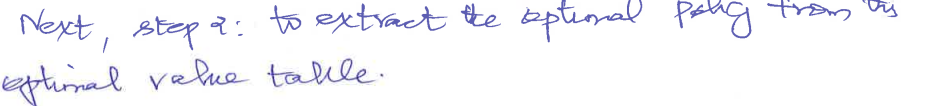 Next, step 2: to extract the optimal policy from this
optimal value table.